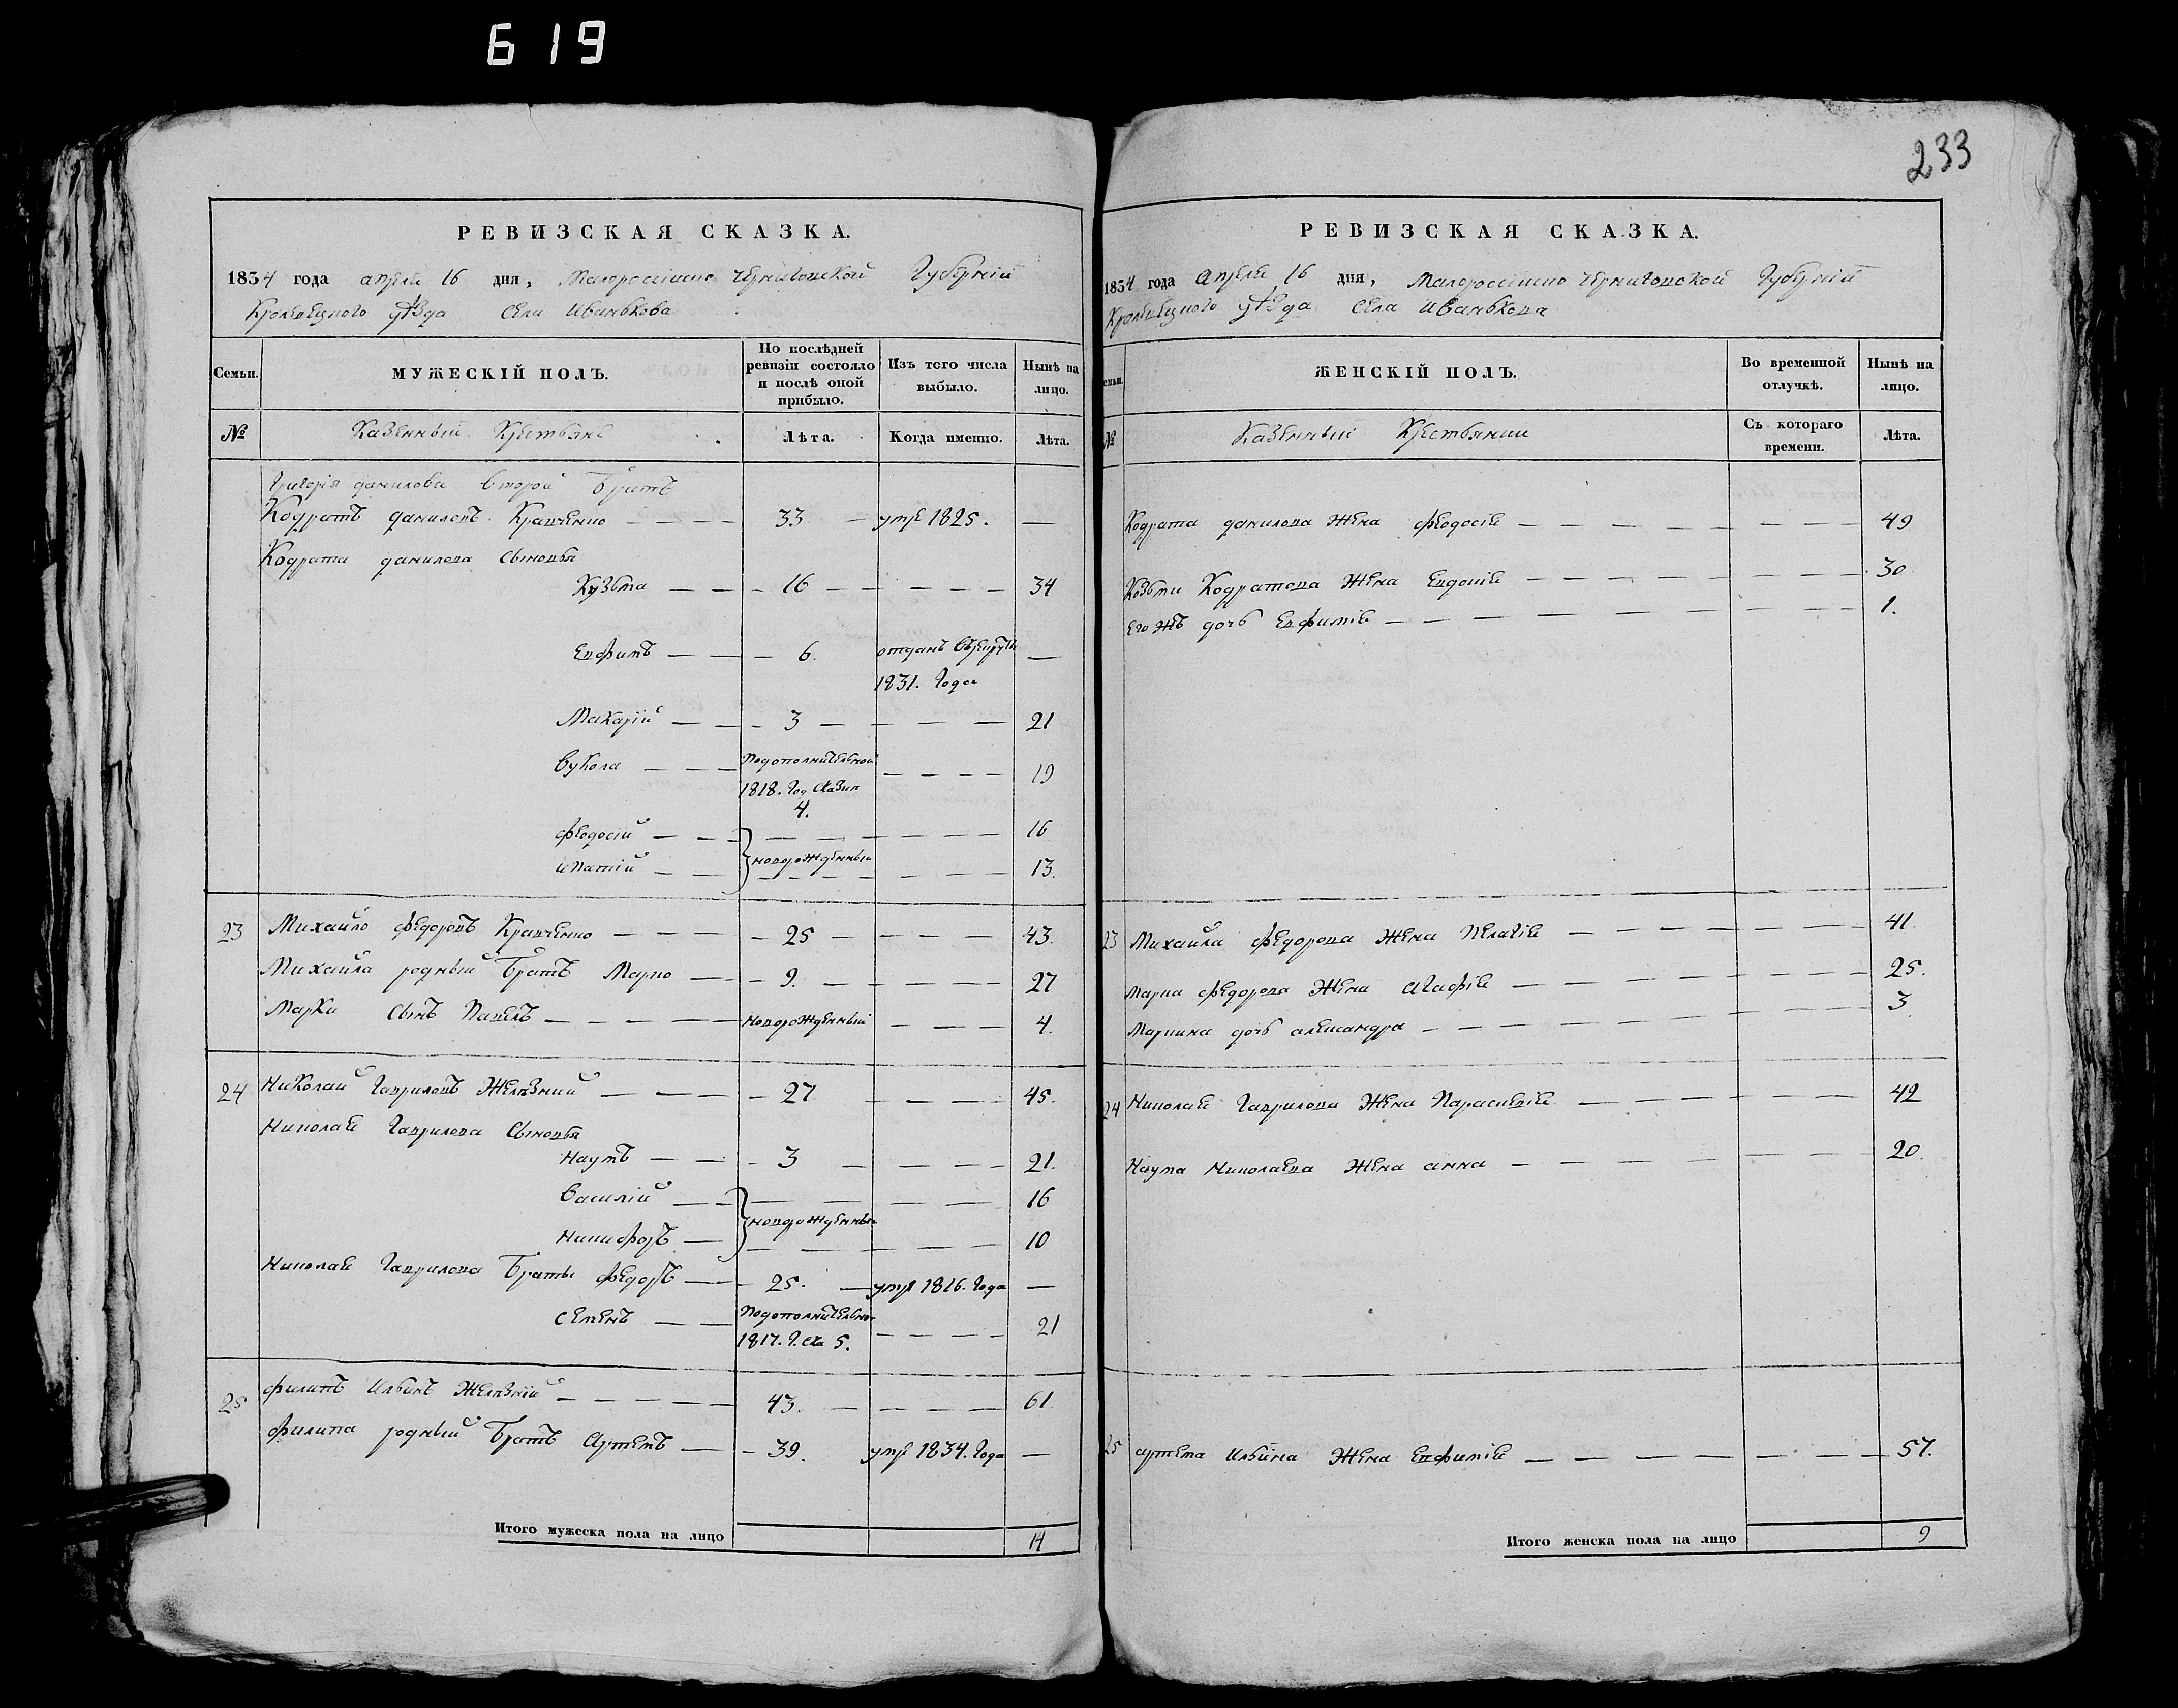 619
233
РЕВИЗСКАЯ СКАЗКА.
1834 года апреля 16 дня, Малороссийско Черниговской Губернии
Кролевецкого уѣзда Села Иванькова
Семьи.
МУЖЕСКІЙ ПОЛЪ.
По послѣдней ревизіи состояло и послѣ оной прибыло.
Изъ того числа выбыло.
Нынѣ на лицо.
№ Казенный Крестьяне Лѣта. Когда именно. Лѣта.
Григорія данилова второй Братъ
Кодратъ даниловъ Кравченко — 33 — умре 1825. —
Кодрата данилова Сыновья
Кузьма — 16 — 34
Евфимъ — 6. отданъ Врекруты —
1831. Года
Макарій — 3 — 21
Вукола — Подополнительной — 19
1818. Год Сказки
4.
Феодосій — 16
новорожденныи
ипатій — 13.
23 Михайло Федоровъ Кравченко — 25 — 43.
Михайла родный Братъ Марко — 9. — 27
Марки Сынъ Павелъ — новорожденный — 4.
24 Николай Гавриловъ Желѣзний — 27 — 45.
Николая Гаврилова Сыновья
Наумъ — 3 — 21.
Василій — 16
новорожденныи
Никифоръ — 10
Николая Гаврилова Браты Федоръ — 25. — умре 1816. Года —
Семенъ — Подополнительно — 21
1817. Г. Ска 5.
25 филипъ Ильинъ Желѣзній — 43. — 61.
Филипа родный Братъ Артемъ — 39. умре 1834. Года —
Итого мужеска пола на лицо 14
РЕВИЗСКАЯ СКАЗКА.
1834 года апреля 16 дня, Малороссийско Черниговской Губернии
Кролевецкого уѣзда Села Иванькова
Семьи.
ЖЕНСКІЙ ПОЛЪ.
Во временной отлучкѣ.
Нынѣ на лицо.
№ Казенныи Крестьянки Съ котораго времени. Лѣта.
Кодрата данилова Жена Феодосія — 49
Козьми Кодратова Жена Евдокія — 30
Его жъ дочь Евфимія — 1.
23 Михайла Федорова Жена Пелагія — 41.
Марка Федорова Жена Агафія — 25.
Маркина дочь александра — 3.
24 Николая Гаврилова Жена Параскевія — 42
Наума Николаева Жена анна — 20.
25 артема Ильина Жена Евфимія — 57.
Итого женска пола на лицо 9